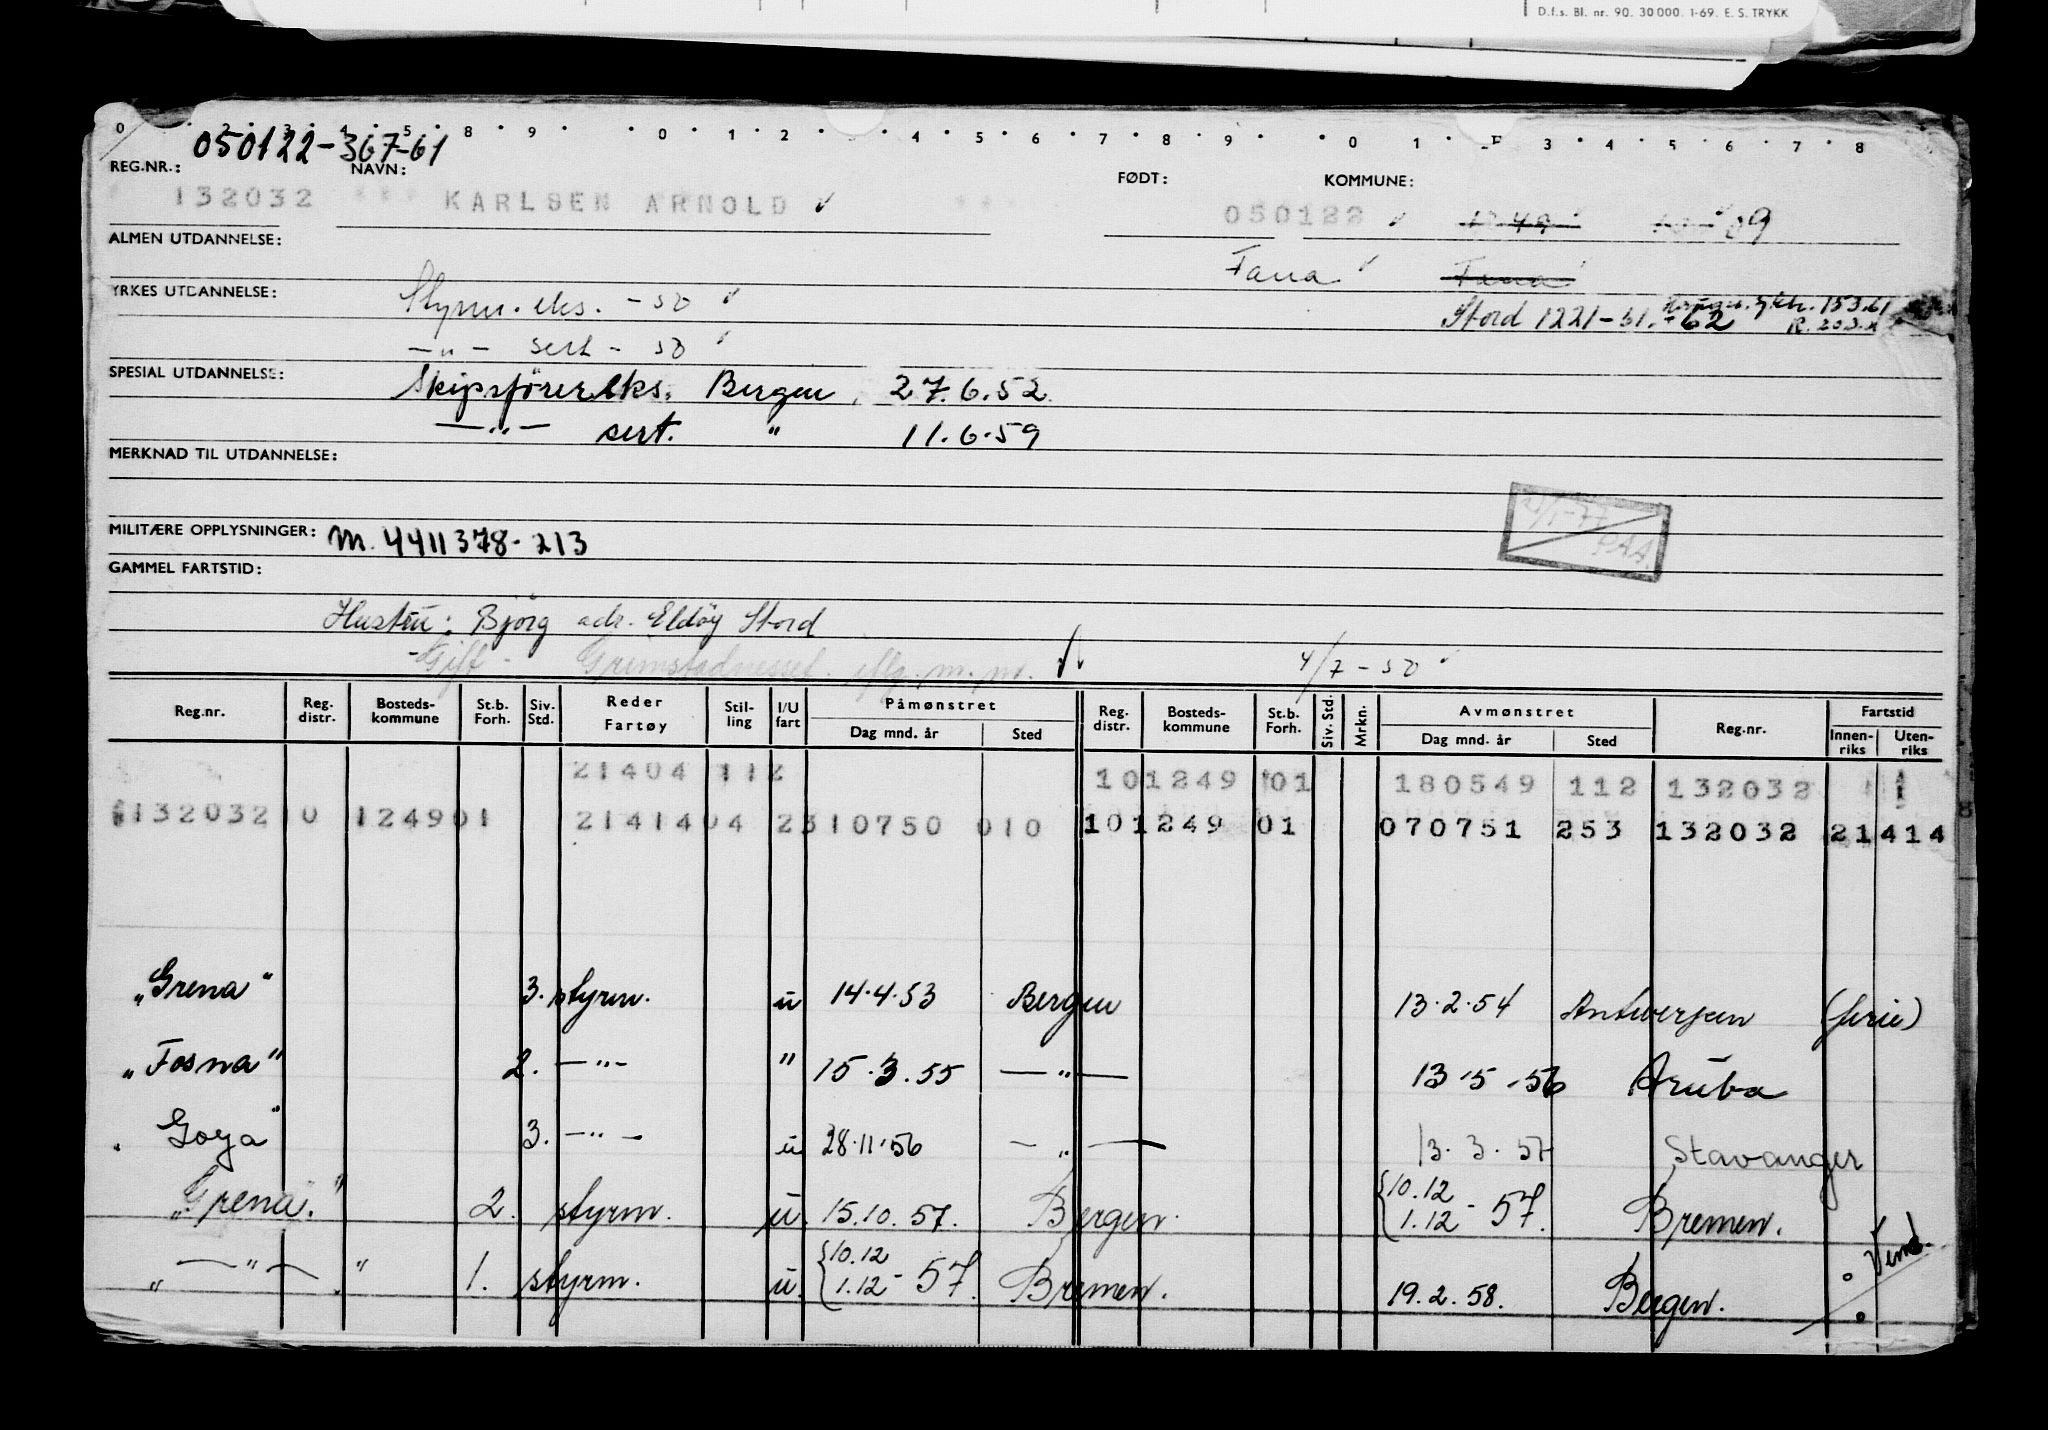 D.f.s. Bl. nr. 90. 30 000. 1-69. E. S. TRYKK
050122-367-61
REG.NR.: NAVN: FØDT: KOMMUNE:
132032 KARLSEN ARNOLD 050122 09
ALMEN UTDANNELSE:
Fana Fana
YRKES UTDANNELSE: Styrm. eks. - 50
Stord 1221-61.-62 153.61
—"— sert - 50
SPESIAL UTDANNELSE: Skipsförereks. Bergen, 27.6.52
—"— sert. " 11.6.59
MERKNAD TIL UTDANNELSE:
MILITÆRE OPPLYSNINGER: M. 4411378-213
GAMMEL FARTSTID:
Hustru: Björg adr. Eldöy Stord
-Gift- 4/7-50
Reg.nr. Reg. distr. Bosteds-kommune St.b. Forh. Siv. Std. Reder Fartøy Stil-ling I/U fart Påmønstret Dag mnd. år Sted Reg. distr. Bosteds-kommune St.b. Forh. Siv. Std. Mrkn. Avmønstret Dag mnd. år Sted Reg.nr. Fartstid Innen-riks Uten-riks
21404 112 101249 01 180549 112 132032
132032 0 124901 2141404 2310750 010 101249 01 070751 253 132032 21414
"Grena" 3. styrm. u 14.4.53 Bergen 13.2.54 Antwerpen (ferie)
"Fosna" 2. —"— " 15.3.55 —"— 13.5.56 Aruba
Goya" 3. —"— u 28.11.56 —"— 13.3.57 Stavanger
"Grena." 2. styrm. u. 15.10.57. Bergen. {10.12 1.12 - 57. Bremen.
" —"— " 1. styrm. u. {10.12 1.12 - 57. Bremen. 19.2.58. Bergen. Vend.